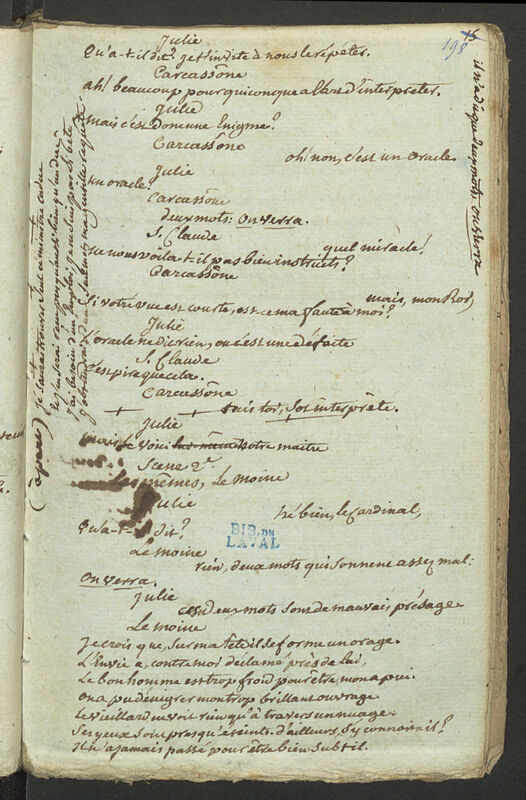 198
15
Julie
Qu'a-t-il dit? je t'invite à nous le répéter.
Carcassône
ah! beaucoup pour quiconque a l'art d'interpreter.
Julie
mais c'est donc une Enigme?
Carcassône
oh! non, c'est un oracle.
Julie
un oracle!
Carcassône
deux mots: on verra.
S. Claude
quel miracle!
ne nous voilà-t-il pas bien instruits?
Carcassône
mais, mon
Si votre vue est courte, est-ce ma faute à moi?
Julie
L'oracle ne dit rien, ou c'est une défaite
S. Claude
c'est pire que cela.
Carcassône
tais toi, sot interprète.
Julie
voici notre maitre
Scene 2e
Les mêmes, Le moine
Julie
hé bien, le Cardinal,
Qu'a-t-il dit?
Le moine
rien, deux mots qui sonnent assez mal:
On verra.
Julie
ces deux mots sont de mauvais présage.
Le moine
Je crois que, sur ma tête il se forme un orage.
L'Envie a, contre moi déclamé près de lui,
Le bonhomme est trop froid pour être mon apui.
on a pu dénigrer mon trop brillant ouvrage.
Le vieillard ne voit rien qu'à travers un nuage.
Ses yeux sont presqu'éteints. d'ailleurs, s'y connoit-il?
Il n'a jamais passé pour être bien subtil.
BIB. DE
LAVAL
il n'a dit que deux mots: on verra
(à part)